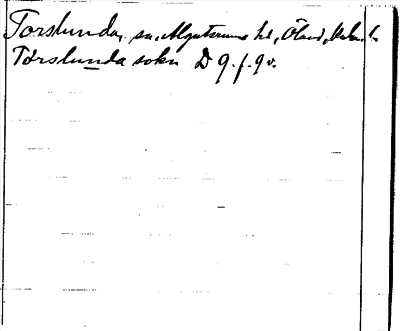 Torslunda, sn, Algutsrums hd, Öland, Kalm. l.
Torslunda sokn D 9. f. 9 v.